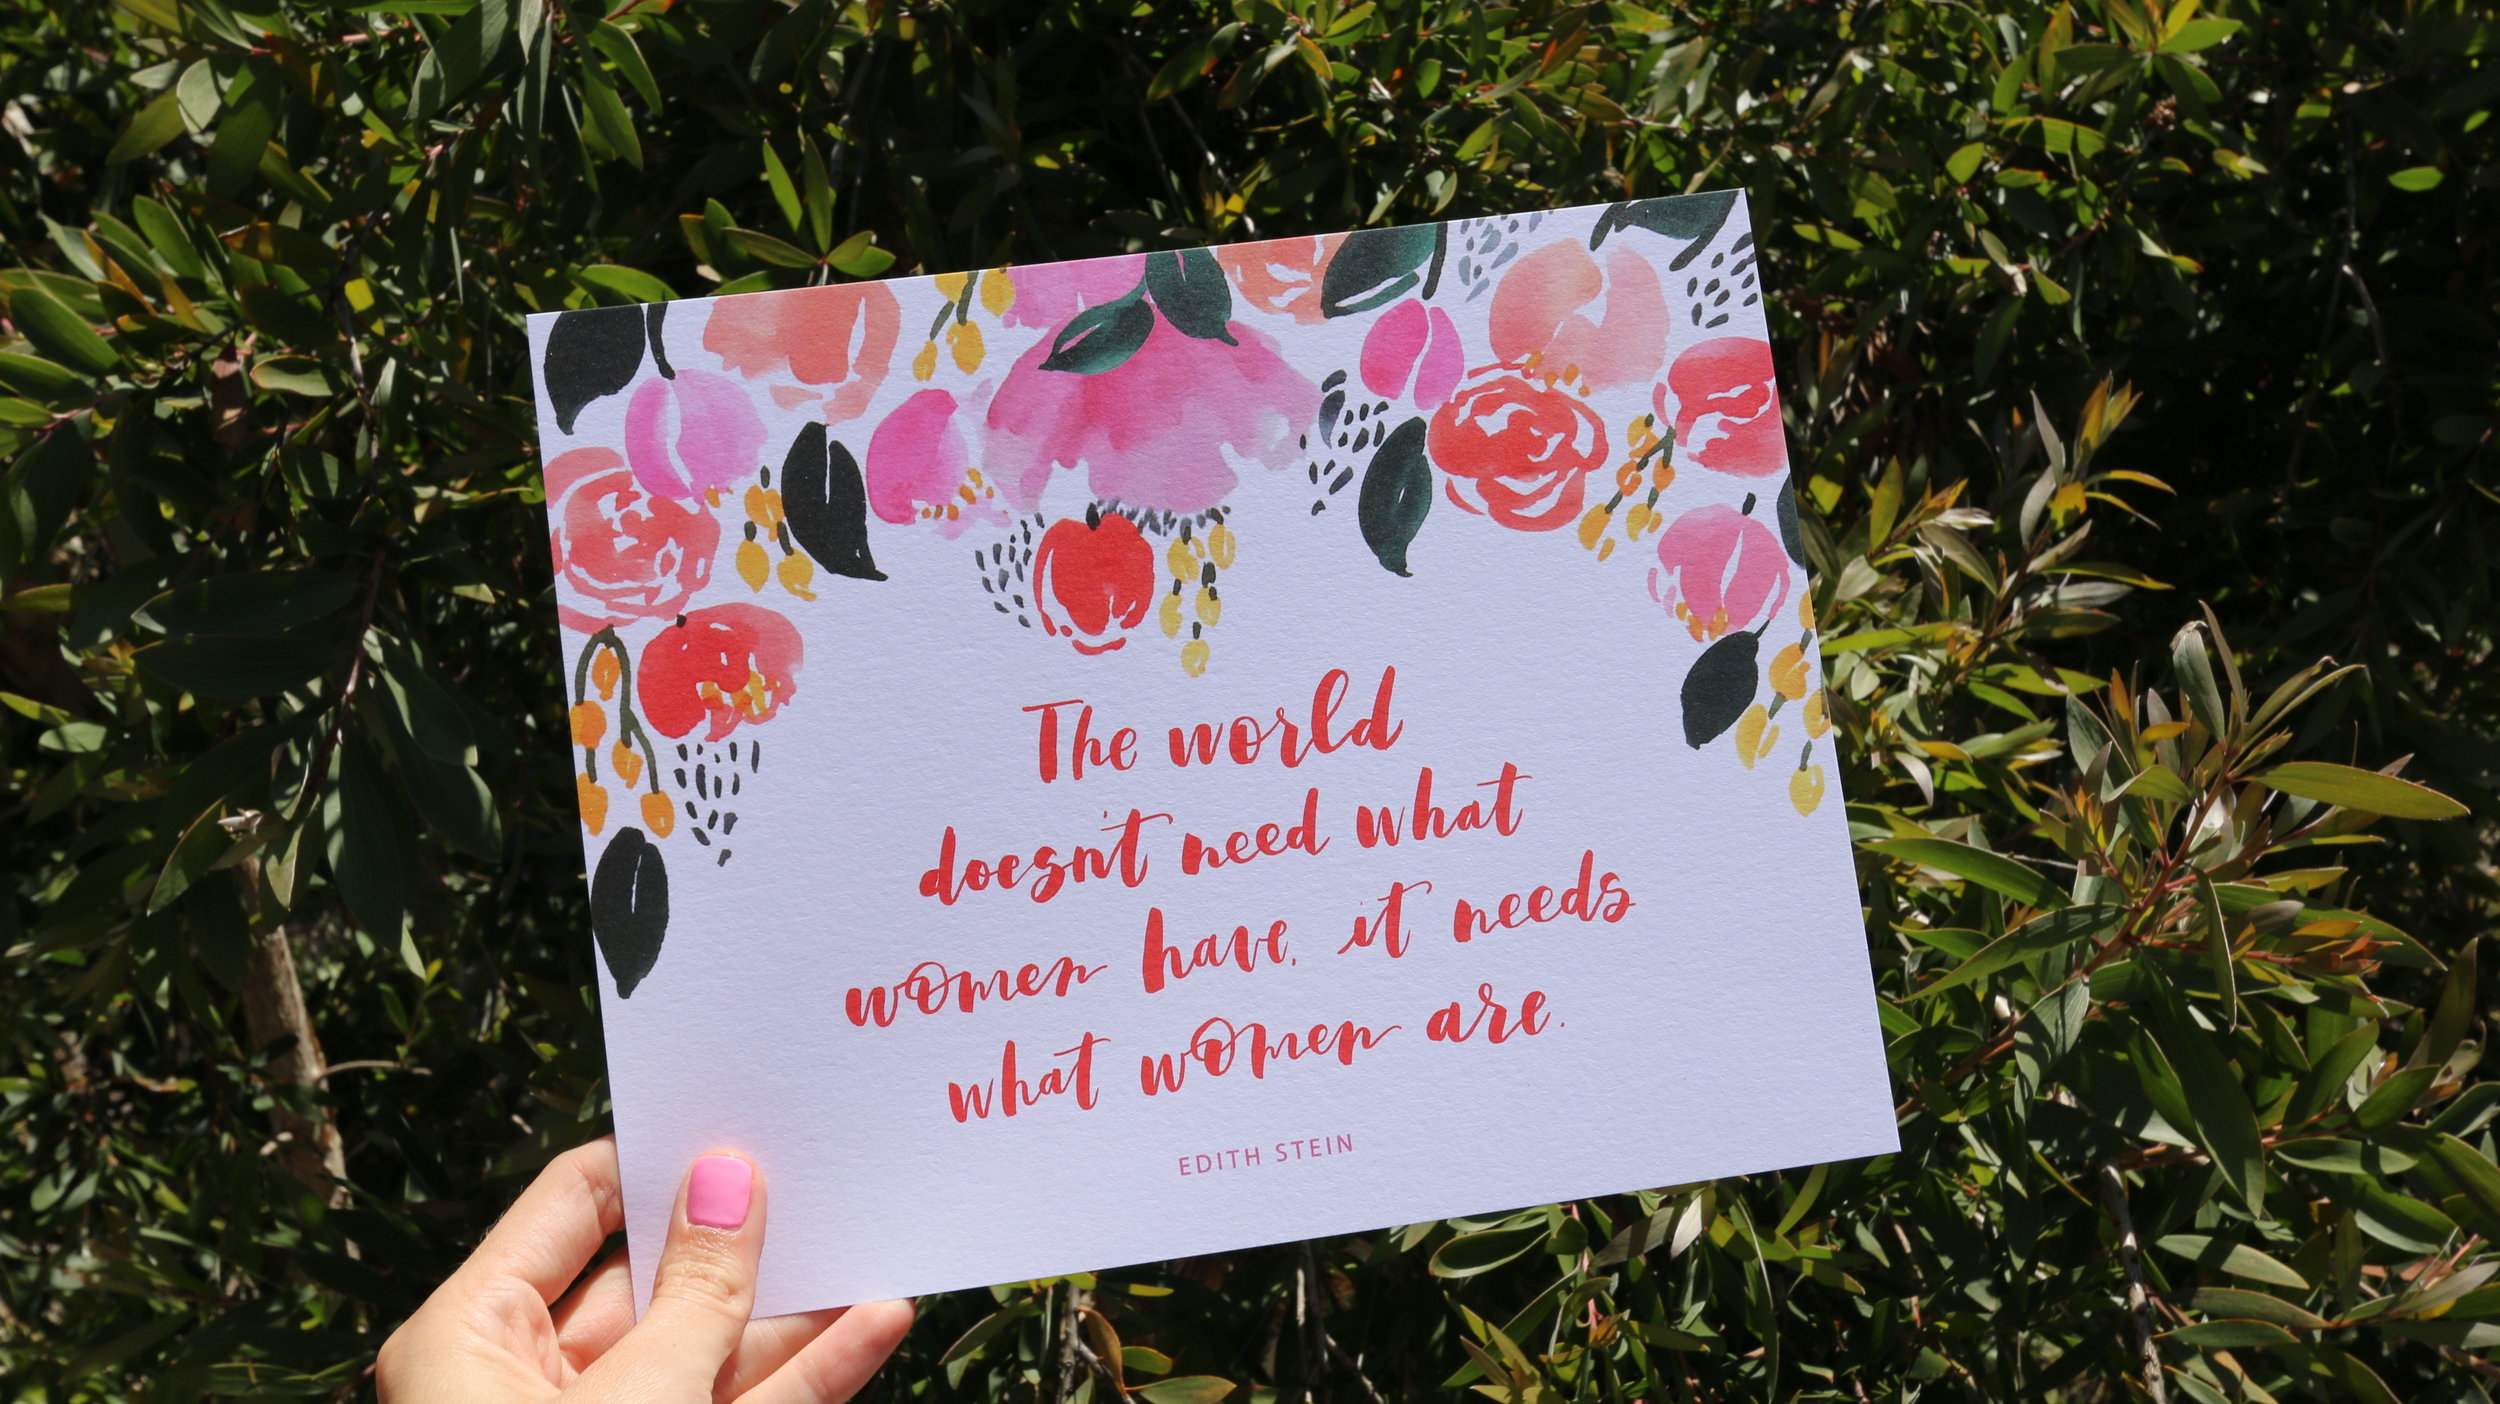 The world
doesn't need what
women have, it needs
what women are.
EDITH STEIN